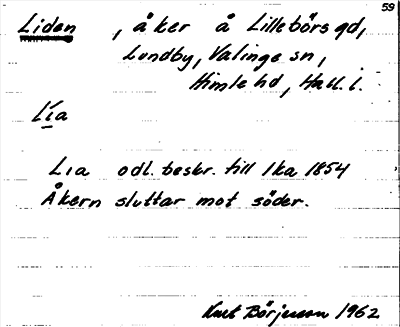 59
Liden , åker å Lillebörs gd,
Lundby, Valinge sn,
Himle hd, Hall. l.
Lia
Lıa odl. beskr. till lka 1854
Åkern sluttar mot söder.
Kurt Börjesson 1962